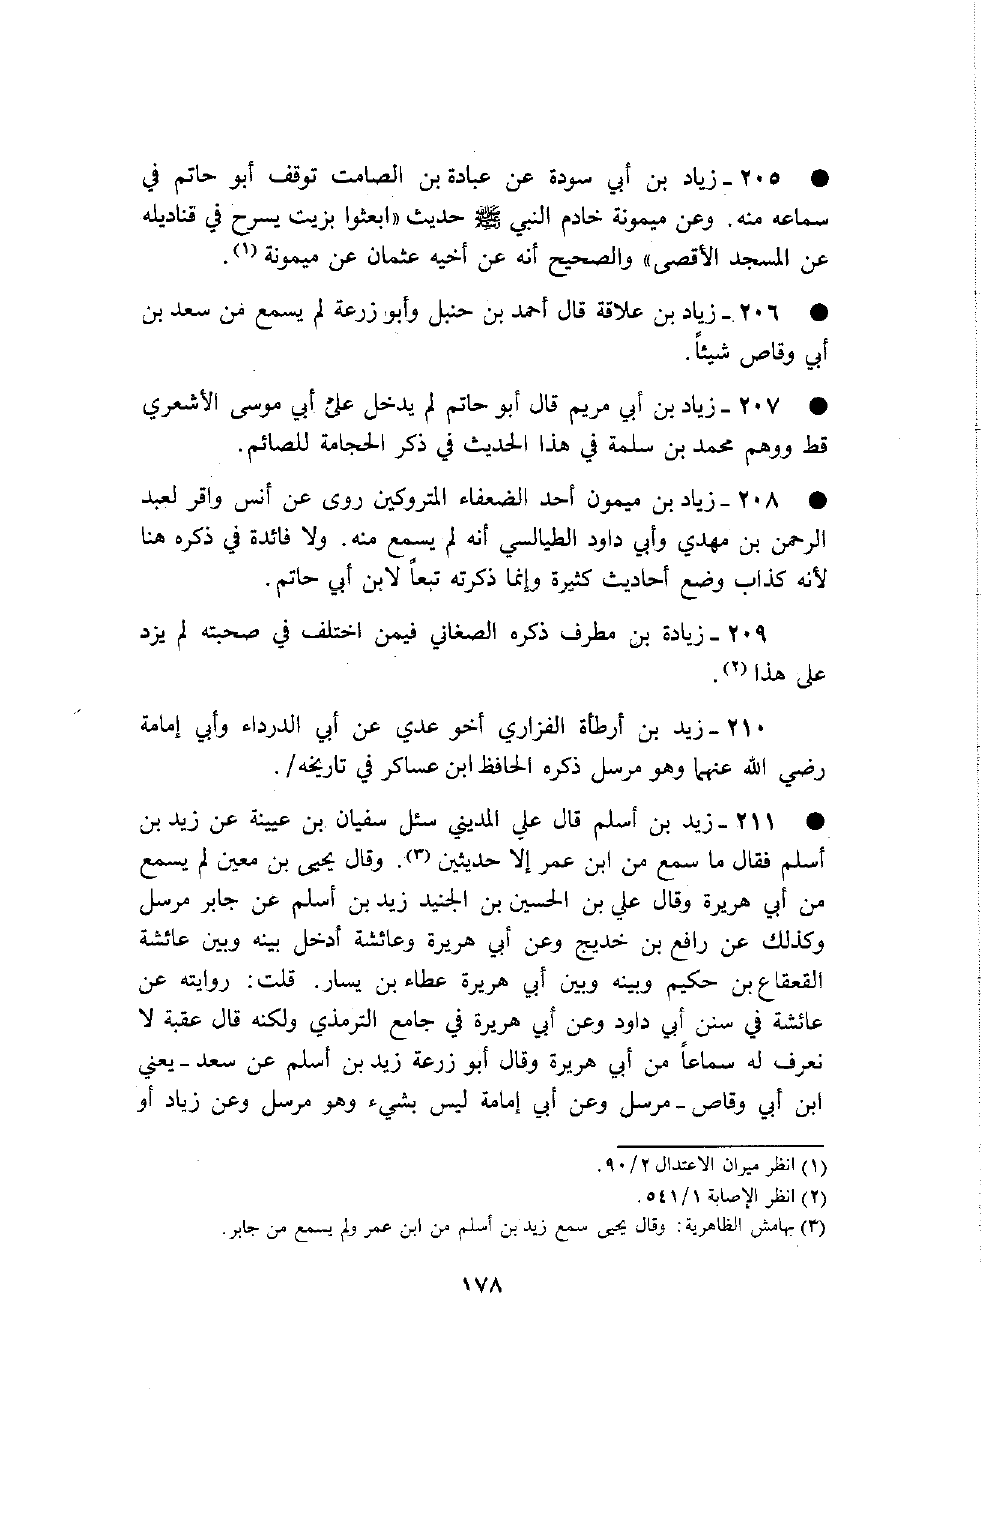 ● ٢٠٥ ـ زياد بن أبي سودة عن عبادة بن الصامت توقف أبو حاتم في
سماعه منه. وعن ميمونة خادم النبي ﷺ حديث «ابعثوا بزيت يسرح في قناديله
عن المسجد الأقصى» والصحيح أنه عن أخيه عثمان عن ميمونة (١).
● ٢٠٦ ـ زياد بن علاقة قال أحمد بن حنبل وأبو زرعة لم يسمع من سعد بن
أبي وقاص شيئاً.
● ٢٠٧ ـ زياد بن أبي مريم قال أبو حاتم لم يدخل على أبي موسى الأشعري
قط ووهم محمد بن سلمة في هذا الحديث في ذكر الحجامة للصائم.
● ٢٠٨ ـ زياد بن ميمون أحد الضعفاء المتروكين روى عن أنس واقر لعبد
الرحمن بن مهدي وأبي داود الطيالسي أنه لم يسمع منه. ولا فائدة في ذكره هنا
لأنه كذاب وضع أحاديث كثيرة وإنما ذكرته تبعاً لابن أبي حاتم.
٢٠٩ ـ زيادة بن مطرف ذكره الصغاني فيمن اختلف في صحبته لم يزد
على هذا (٢).
٢١٠ ـ زيد بن أرطأة الفزاري أخو عدي عن أبي الدرداء وأبي إمامة
رضي الله عنهما وهو مرسل ذكره الحافظ ابن عساكر في تاريخه/.
● ٢١١ ـ زيد بن أسلم قال علي المديني سئل سفيان بن عيينة عن زيد بن
أسلم فقال ما سمع من ابن عمر إلا حديثين (٣). وقال يحيى بن معين لم يسمع
من أبي هريرة وقال علي بن الحسين بن الجنيد زيد بن أسلم عن جابر مرسل
وكذلك عن رافع بن خديج وعن أبي هريرة وعائشة أدخل بينه وبين عائشة
القعقاع بن حكيم وبينه وبين أبي هريرة عطاء بن يسار. قلت: روايته عن
عائشة في سنن أبي داود وعن أبي هريرة في جامع الترمذي ولكنه قال عقبة لا
نعرف له سماعاً من أبي هريرة وقال أبو زرعة زيد بن أسلم عن سعد ـ يعني
ابن أبي وقاص ـ مرسل وعن أبي إمامة ليس بشيء وهو مرسل وعن زياد أو
(١) انظر ميران الاعتدال ٩٠/٢.
(٢) انظر الإصابة ٥٤١/١.
(٣) بهامش الظاهرية: وقال يحيى سمع زيد بن أسلم من ابن عمر ولم يسمع من جابر.
١٧٨